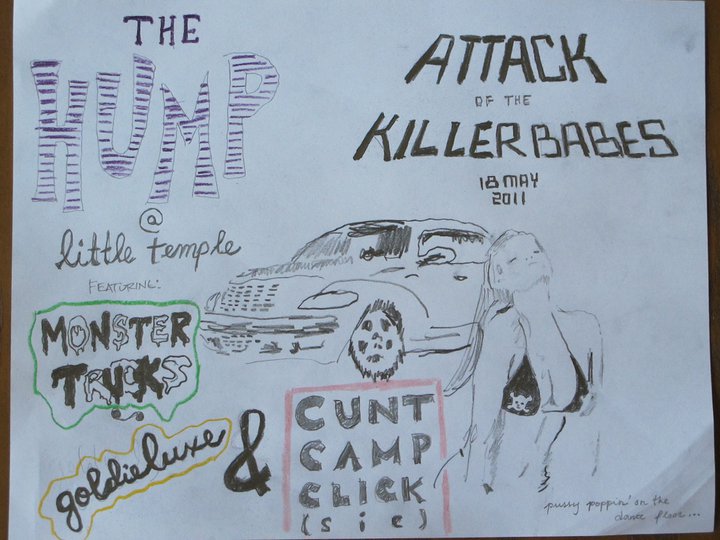 THE
HUMP
@
little temple
FEATURING:
MONSTER
TRUCKS
goldieluxe
&
CUNT
CAMP
CLICK
(sic)
ATTACK
OF THE
KILLER BABES
18 MAY
2011
pussy poppin' on the
dance floor...